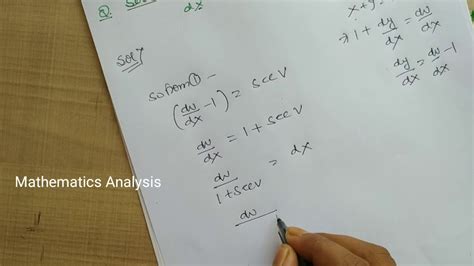 Q.
dx
x + y =
⇒ 1 + dy/dx = dv/dx
dy/dx = dv/dx - 1
Sol
So from ① -
(dv/dx - 1) = sec v
dv/dx = 1 + sec v
dv/(1 + sec v) = dx
dv
Mathematics Analysis